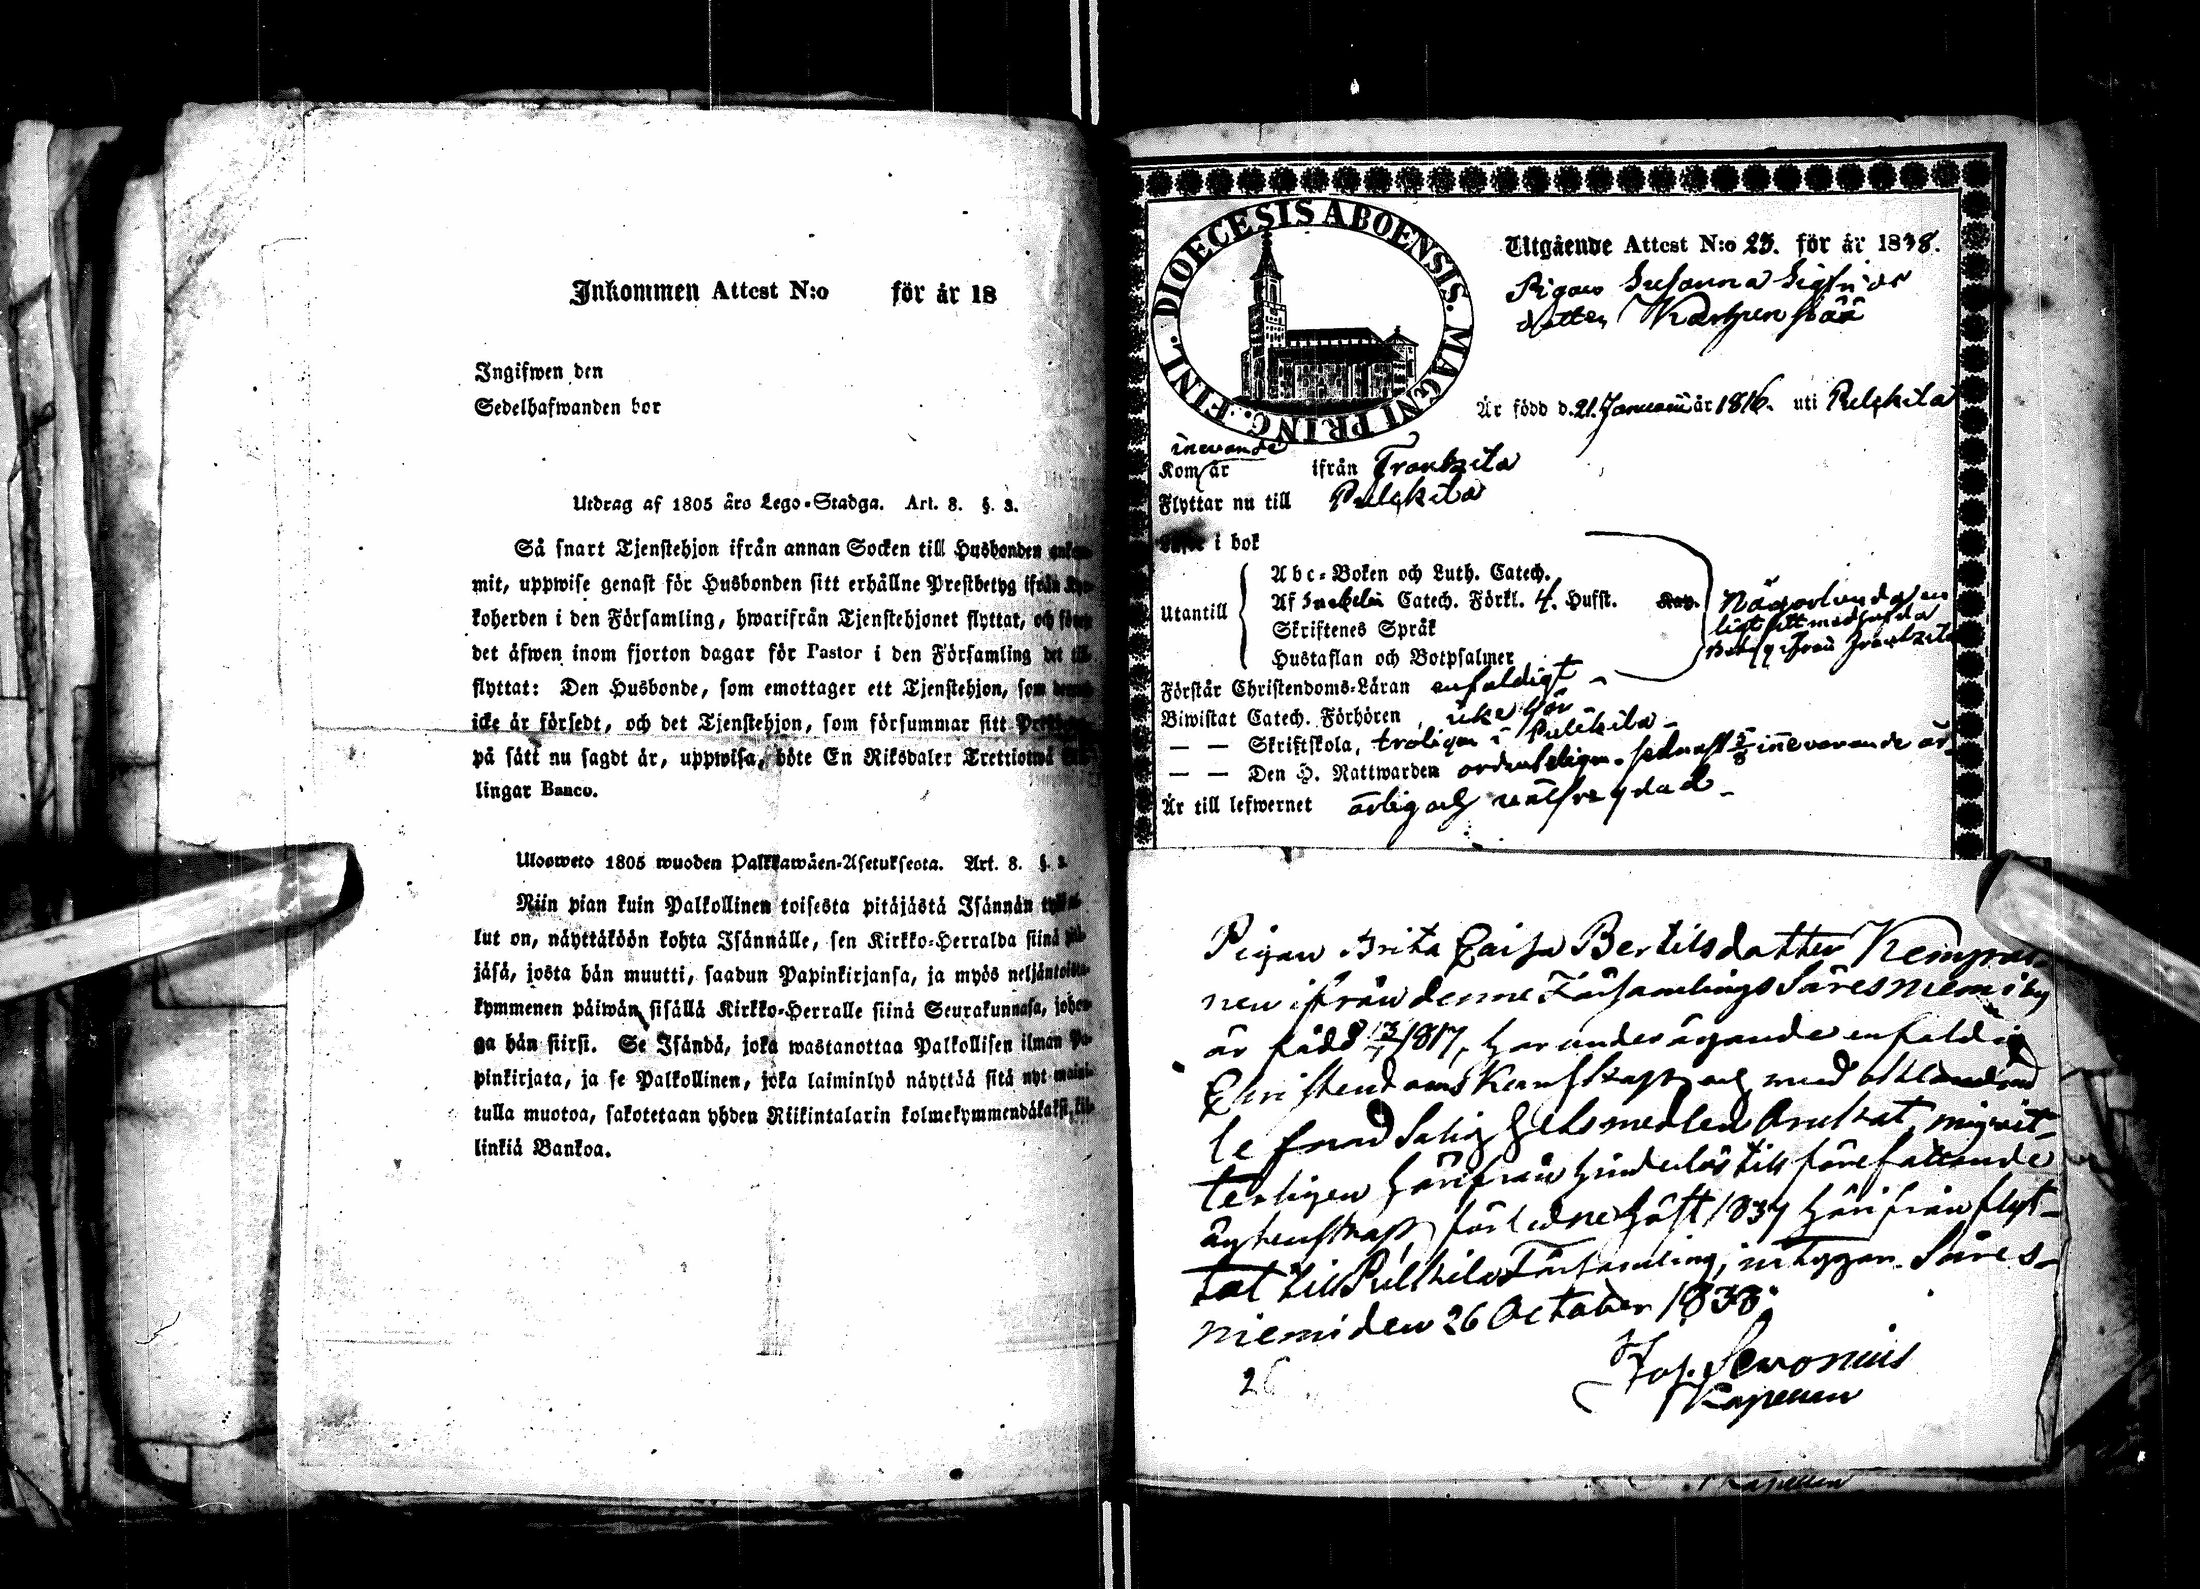 Inkommen Attest N:o för år 18
Ingifwen den
Sedelhafwanden bor
Utdrag af 1805 års Lego-Stadga. Art. 8. §. 3.
Så snart Tjenstehjon ifrån annan Socken till Husbonden ankom-
mit, uppwise genast för Husbonden sitt erhållne Prestbetyg ifrån Kyr-
koherden i den Församling, hwarifrån Tjenstehjonet flyttat, och sedan
det äfwen inom fjorton dagar för Pastor i den Församling det till-
flyttat: Den Husbonde, som emottager ett Tjenstehjon, som
icke är försedt, och det Tjenstehjon, som försummar sitt
på sätt nu sagdt är, uppwisa, böte En Riksdaler Trettiotwå
lingar Banco.
Ulosweto 1805 wuoden Palkkawäen-Asetuksesta. Art. 8. §. 3.
Niin pian kuin Palkollinen toisesta pitäjästä Isännän tykö
lut on, näyttäköön kohta Isännälle, sen Kirkko-Herralda siinä pi-
jäsä, josta hän muutti, saadun Papinkirjansa, ja myös neljäntoista-
kymmenen päiwän sisällä Kirkko-Herralle siinä Seurakunnasa, johon-
ga hän siirsi. Se Isändä, joka wastanottaa Palkollisen ilman Pa-
pinkirjata, ja se Palkollinen, joka laiminlyö näyttää sitä nyt maini-
tulla muotoa, sakotetaan yhden Riikintalarin kolmekymmendäkaksi kil-
linkiä Bankoa.
DIOECESIS ABOENSIS. MAGNI PRINC. FINL.
Utgående Attest N:o 25. för år 1838.
Pigan Susanna Sigfrids
dotter
Är född d. 21. Januarii år 1816. uti Pulkila
inevarande
Kom år ifrån Frantzila
Flyttar nu till Pulkila
i bok
Abc-Boken och Luth. Catech.
Utantill Af Swebelii Catech. Förkl. 4. Hufst.
Skriftenes Språk
Hustaflan och Botpsalmer
Någorlunda en
ligt sitt medhafda
Betyg ifrån Frantzila
Förstår Christendoms-Läran enfaldigt
Biwistat Catech. Förhören, icke här
— — Skriftskola, troligen i Pulkila
— — Den H. Nattwarden ordenteligen. sednast 5/8 innevarande år
Är till lefwernet ärlig och välfrejdad
Pigan Brita Caisa Bertilsdotter Kempai-
nen ifrån denne Församlings Säresniemi by
är född 1817, har under ägande enfaldig
Christendoms Kunskap och med oklandrad
lefnad Salighetsmedlen brukat, migvit-
terligen härifrån hinderlös till förefallande
ägtenskap förledne höst 1837 härifrån flyt-
tat till Pulkila Församling, intygar. Säres-
niemi den 26 October 1838.
Kapellan
26
Kapellan